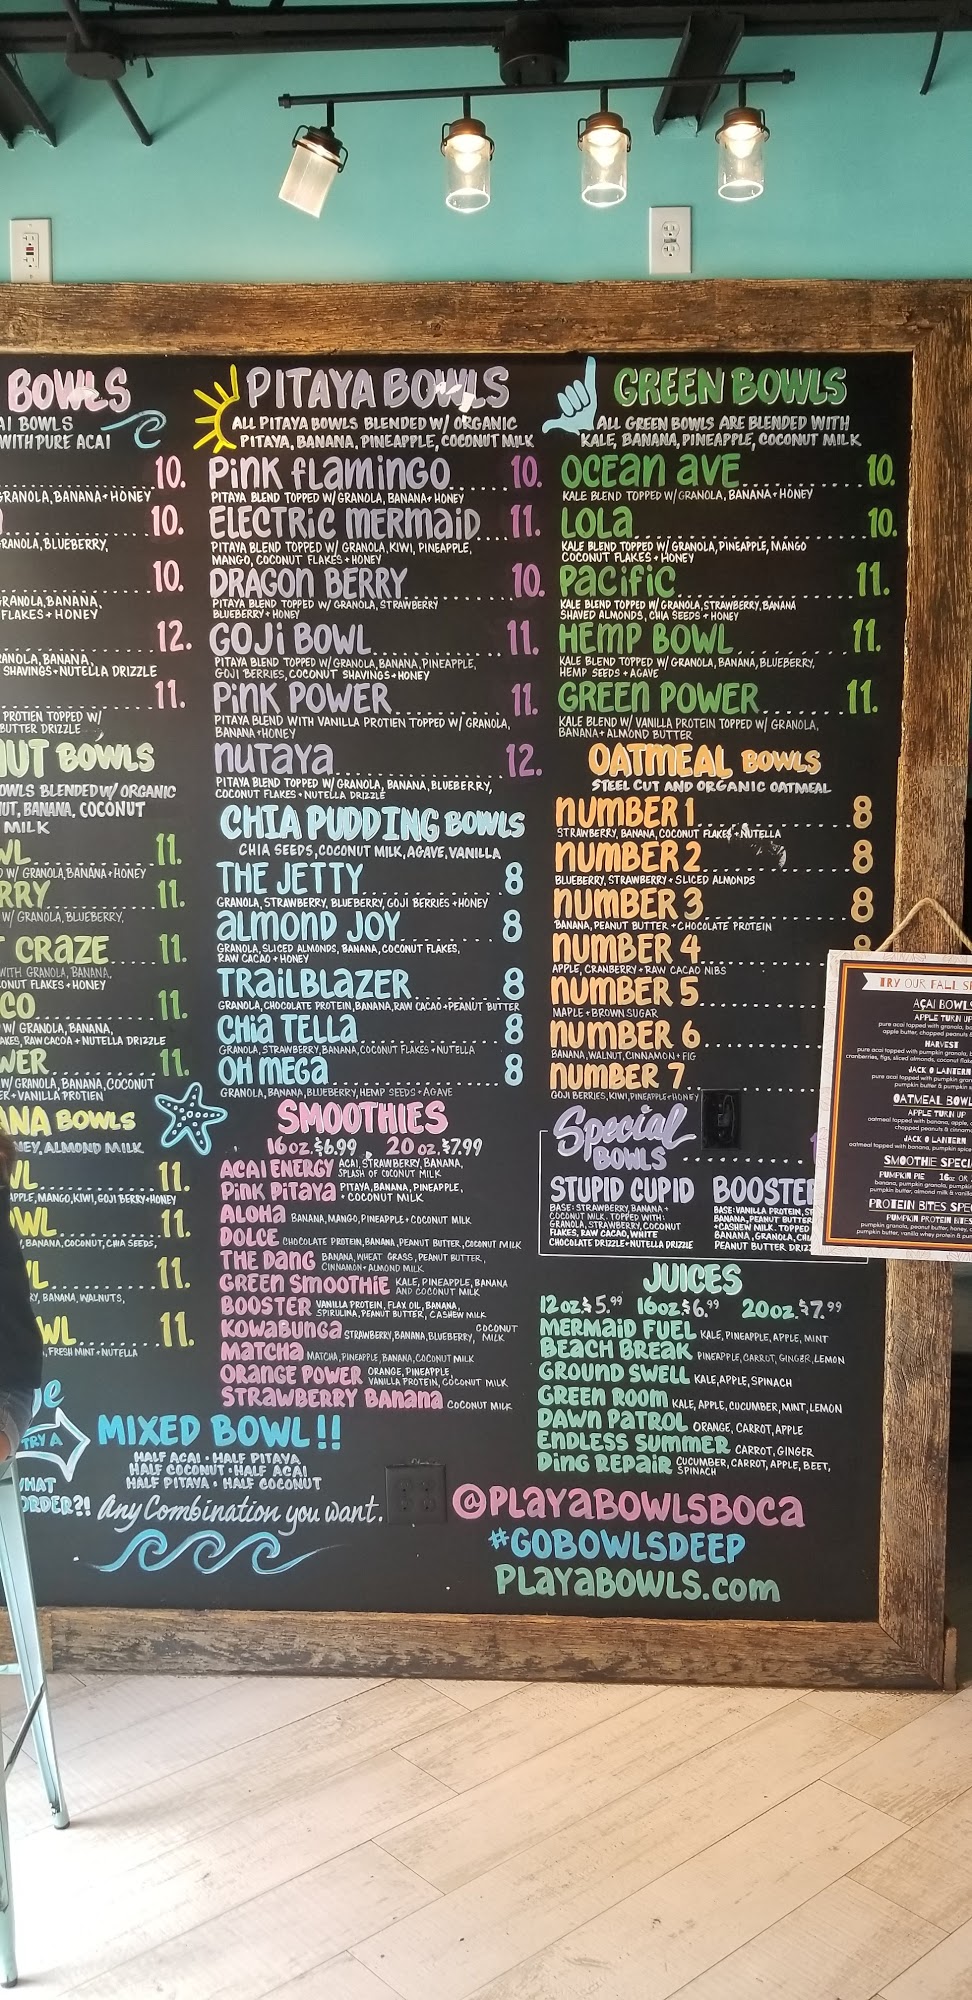 BOWLS
AI BOWLS
WITH PURE ACAI
10.
GRANOLA, BANANA + HONEY
10.
RANOLA, BLUEBERRY,
10.
GRANOLA, BANANA,
FLAKES + HONEY
12.
ANOLA, BANANA,
SHAVINGS + NUTELLA DRIZZLE
11.
PROTIEN TOPPED W/
BUTTER DRIZZLE
NUT BOWLS
OWLS BLENDED W/ ORGANIC
NUT, BANANA, COCONUT
MILK
WL 11.
D W/ GRANOLA, BANANA + HONEY
RRY 11.
W/ GRANOLA, BLUEBERRY,
T CRAZE 11.
WITH GRANOLA, BANANA,
ONUT FLAKES + HONEY
CO 11.
W/ GRANOLA, BANANA,
AKES, RAW CACOA + NUTELLA DRIZZLE
WER 11.
W/ GRANOLA, BANANA, COCONUT
ER + VANILLA PROTIEN
ANA BOWLS
NEY, ALMOND MILK
WL 11.
APPLE, MANGO, KIWI, GOJI BERRY + HONEY
OWL 11.
, BANANA, COCONUT, CHIA SEEDS,
L 11.
RY, BANANA, WALNUTS,
WL 11.
, FRESH MINT + NUTELLA
PITAYA BOWLS
ALL PITAYA BOWLS BLENDED W/ ORGANIC
PITAYA, BANANA, PINEAPPLE, COCONUT MILK
PINK FLAMINGO 10.
PITAYA BLEND TOPPED W/ GRANOLA, BANANA + HONEY
ELECTRIC MERMAID 11.
PITAYA BLEND TOPPED W/ GRANOLA, KIWI, PINEAPPLE,
MANGO, COCONUT FLAKES + HONEY
DRAGON BERRY 10.
PITAYA BLEND TOPPED W/ GRANOLA, STRAWBERRY
BLUEBERRY + HONEY
GOJI BOWL 11.
PITAYA BLEND TOPPED W/ GRANOLA, BANANA, PINEAPPLE,
GOJI BERRIES, COCONUT SHAVINGS + HONEY
PINK POWER 11.
PITAYA BLEND WITH VANILLA PROTIEN TOPPED W/ GRANOLA,
BANANA + HONEY
NUTAYA 12.
PITAYA BLEND TOPPED W/ GRANOLA, BANANA, BLUEBERRY,
COCONUT FLAKES + NUTELLA DRIZZLE
CHIA PUDDING BOWLS
CHIA SEEDS, COCONUT MILK, AGAVE, VANILLA
THE JETTY 8
GRANOLA, STRAWBERRY, BLUEBERRY, GOJI BERRIES + HONEY
ALMOND JOY 8
GRANOLA, SLICED ALMONDS, BANANA, COCONUT FLAKES,
RAW CACAO + HONEY
TRAILBLAZER 8
GRANOLA, CHOCOLATE PROTEIN, BANANA, RAW CACAO + PEANUT BUTTER
CHIA TELLA 8
GRANOLA, STRAWBERRY, BANANA, COCONUT FLAKES + NUTELLA
OH MEGA 8
GRANOLA, BANANA, BLUEBERRY, HEMP SEEDS + AGAVE
SMOOTHIES
16 oz. $6.99 20 oz. $7.99
ACAI ENERGY ACAI, STRAWBERRY, BANANA,
SPLASH OF COCONUT MILK
PINK PITAYA PITAYA, BANANA, PINEAPPLE,
+ COCONUT MILK
ALOHA BANANA, MANGO, PINEAPPLE + COCONUT MILK
DOLCE CHOCOLATE PROTEIN, BANANA, PEANUT BUTTER, COCONUT MILK
THE DANG BANANA, WHEAT GRASS, PEANUT BUTTER,
CINNAMON + ALMOND MILK
GREEN SMOOTHIE KALE, PINEAPPLE, BANANA
AND COCONUT MILK
BOOSTER VANILLA PROTEIN, FLAX OIL, BANANA,
SPIRULINA, PEANUT BUTTER, CASHEW MILK
KOWABUNGA STRAWBERRY, BANANA, BLUEBERRY, COCONUT
MILK
MATCHA MATCHA, PINEAPPLE, BANANA, COCONUT MILK
ORANGE POWER ORANGE, PINEAPPLE,
VANILLA PROTEIN, COCONUT MILK
STRAWBERRY BANANA COCONUT MILK
GREEN BOWLS
ALL GREEN BOWLS ARE BLENDED WITH
KALE, BANANA, PINEAPPLE, COCONUT MILK
OCEAN AVE 10.
KALE BLEND TOPPED W/ GRANOLA, BANANA + HONEY
LOLA 10.
KALE BLEND TOPPED W/ GRANOLA, PINEAPPLE, MANGO
COCONUT FLAKES + HONEY
PACIFIC 11.
KALE BLEND TOPPED W/ GRANOLA, STRAWBERRY, BANANA
SHAVED ALMONDS, CHIA SEEDS + HONEY
HEMP BOWL 11.
KALE BLEND TOPPED W/ GRANOLA, BANANA, BLUEBERRY,
HEMP SEEDS + AGAVE
GREEN POWER 11.
KALE BLEND W/ VANILLA PROTEIN TOPPED W/ GRANOLA,
BANANA + ALMOND BUTTER
OATMEAL BOWLS
STEEL CUT AND ORGANIC OATMEAL
NUMBER 1 8
STRAWBERRY, BANANA, COCONUT FLAKES + NUTELLA
NUMBER 2 8
BLUEBERRY, STRAWBERRY + SLICED ALMONDS
NUMBER 3 8
BANANA, PEANUT BUTTER + CHOCOLATE PROTEIN
NUMBER 4
APPLE, CRANBERRY + RAW CACAO NIBS
NUMBER 5
MAPLE + BROWN SUGAR
NUMBER 6
BANANA, WALNUT, CINNAMON + FIG
NUMBER 7
GOJI BERRIES, KIWI, PINEAPPLE + HONEY
Special
BOWLS
STUPID CUPID
BASE: STRAWBERRY, BANANA +
COCONUT MILK. TOPPED WITH:
GRANOLA, STRAWBERRY, COCONUT
FLAKES, RAW CACAO, WHITE
CHOCOLATE DRIZZLE + NUTELLA DRIZZLE
BOOSTER
BASE: VANILLA PROTEIN, S
BANANA, PEANUT BUTTER
+ CASHEW MILK. TOPPED
BANANA, GRANOLA, CHI
PEANUT BUTTER DRIZZ
JUICES
12 oz. $5.99 16 oz. $6.99 20 oz. $7.99
MERMAID FUEL KALE, PINEAPPLE, APPLE, MINT
BEACH BREAK PINEAPPLE, CARROT, GINGER, LEMON
GROUND SWELL KALE, APPLE, SPINACH
GREEN ROOM KALE, APPLE, CUCUMBER, MINT, LEMON
DAWN PATROL ORANGE, CARROT, APPLE
ENDLESS SUMMER CARROT, GINGER
DING REPAIR CUCUMBER, CARROT, APPLE, BEET,
SPINACH
TRY A
WHAT
ORDER?!
MIXED BOWL!!
HALF ACAI • HALF PITAYA
HALF COCONUT • HALF ACAI
HALF PITAYA • HALF COCONUT
Any Combination you want.
@PLAYABOWLSBOCA
#GOBOWLSDEEP
PLAYABOWLS.com
TRY OUR FALL SP
AÇAI BOWLS
APPLE TURN UP
pure acai topped with granola, ba
apple butter, chopped peanuts &
HARVEST
pure acai topped with pumpkin granola, b
cranberries, figs, sliced almonds, coconut flake
JACK O LANTERN
pure acai topped with pumpkin gran
pumpkin butter & pumpkin s
OATMEAL BOWL
APPLE TURN UP
oatmeal topped with banana, apple, c
chopped peanuts & cinnam
JACK O LANTERN
oatmeal topped with banana, pumpkin spice
SMOOTHIE SPECIA
PUMPKIN PIE 16oz OR
banana, pumpkin granola, pumpkin
pumpkin butter, almond milk & vanilla
PROTEIN BITES SPE
PUMPKIN PROTEIN BITES
pumpkin granola, peanut butter, honey,
pumpkin butter, vanilla whey protein & pum